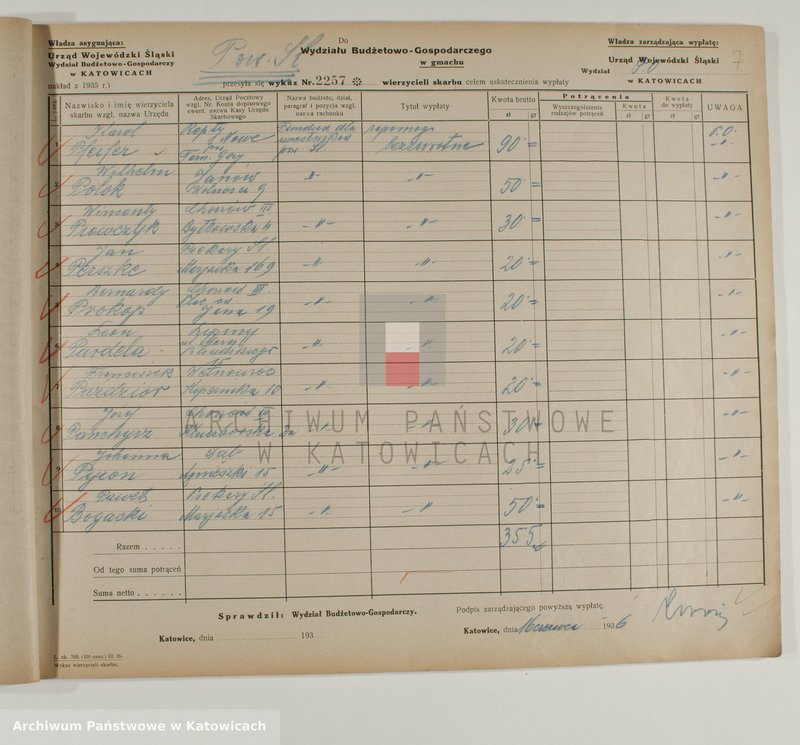 Do
Władza asygnująca:
Urząd Wojewódzki Śląski
Wydział Budżetowo-Gospodarczy
w KATOWICACH
nakład z 1935 r.)
Pow. Śl
Wydziału Budżetowo-Gospodarczego
w gmachu
przesyła się wykaz Nr. 2257 wierzycieli skarbu celem uskutecznienia wypłaty
Władza zarządzająca wypłatę:
Urząd Wojewódzki Śląski
Wydział
w KATOWICACH
7
Nazwisko i imię wierzyciela skarbu wzgl. nazwa Urzędu
Adres, Urząd Pocztowy wzgl. Nr. Konta dopisowego ewent. nazwa Kasy Urzędu Skarbowego
Nazwa budżetu, dział, paragraf i pozycja wzgl. nazwa rachunku
Tytuł wypłaty
Kwota brutto
zł gr
Potrącenia
Wyszczególnienie rodzajów potrąceń
Kwota
zł gr
Kwota do wypłaty
zł gr
UWAGA
Karol Pfeifer Repty Nowe Tarn. Góry Fundusz dla pow. Śl bezzwrotne 90 =
Wilhelm Polok Janów Wolności 9 -"- -"- 50 =
Wincenty Prowczyk Chorzów III Bytkowska 4 -"- -"- 30 =
Jan Perszke Piekary Śl. Marjacka 109 -"- -"- 20 =
Bernardy Prokop Chorzów III Plac Jana 19 -"- -"- 20 =
Leon Pardela Lipiny 15 -"- -"- 20 =
Franciszek Puździor Wełnowiec Kopernika 10 -"- -"- 20 =
Józef Panchyrz Chorzów Kluczborska 2a -"- -"- 30 =
Johanna Pyron Dąb Agnieszki 15 -"- -"- 25 =
Paweł Bogacki Piekary Śl. Marjacka 15 -"- -"- 50 =
355
Razem . . . . .
Od tego suma potrąceń
Suma netto . . . . . .
Sprawdził: Wydział Budżetowo-Gospodarczy.
Podpis zarządzającego powyższą wypłatę.
Katowice, dnia 193
Katowice, dnia 16 czerwca 1936
Wykaz wierzycieli skarbu.
ARCHIWUM PAŃSTWOWE
W KATOWICACH
Archiwum Państwowe w Katowicach